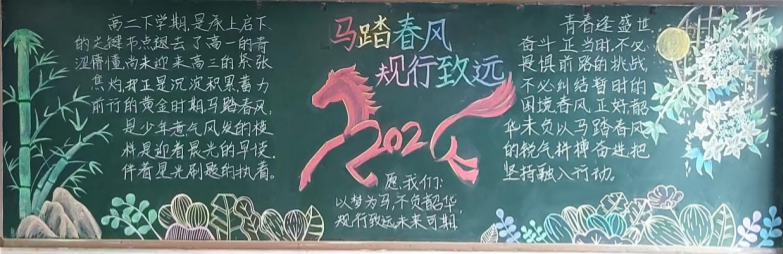 高二下学期,是承上启下
的关键节点褪去了高一的青
涩懵懂尚未迎来高三的紧张
焦灼,却正是沉淀积累蓄力
前行的黄金时期马踏春风,
是少年意气风发的模
样是迎着晨光的早读
伴着星光刷题的执着。
马踏春风
规行致远
202
愿我们:
以梦为马,不负韶华
规行致远未来可期
青春逢盛世
奋斗正当时,不必
畏惧前路的挑战
不必纠结暂时的
困境春风正好,韶
华未负以马踏春风
的锐气拼搏奋进把
坚持融入行动.